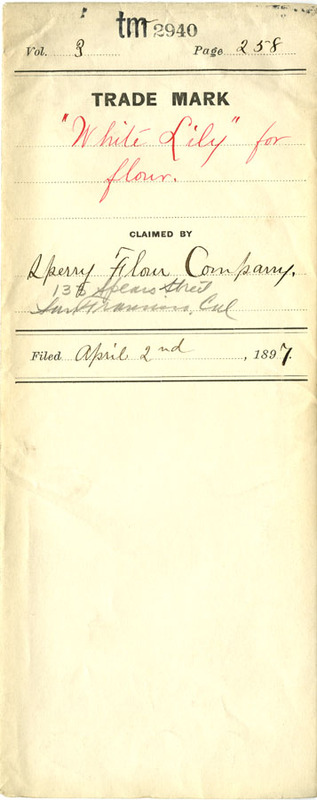 tm 2940
Vol. 3 Page 258
TRADE MARK
"White Lily" for
flour.
CLAIMED BY
Sperry Flour Company.
Spears Street
San Francisco, Cal
Filed April 2nd, 1897.